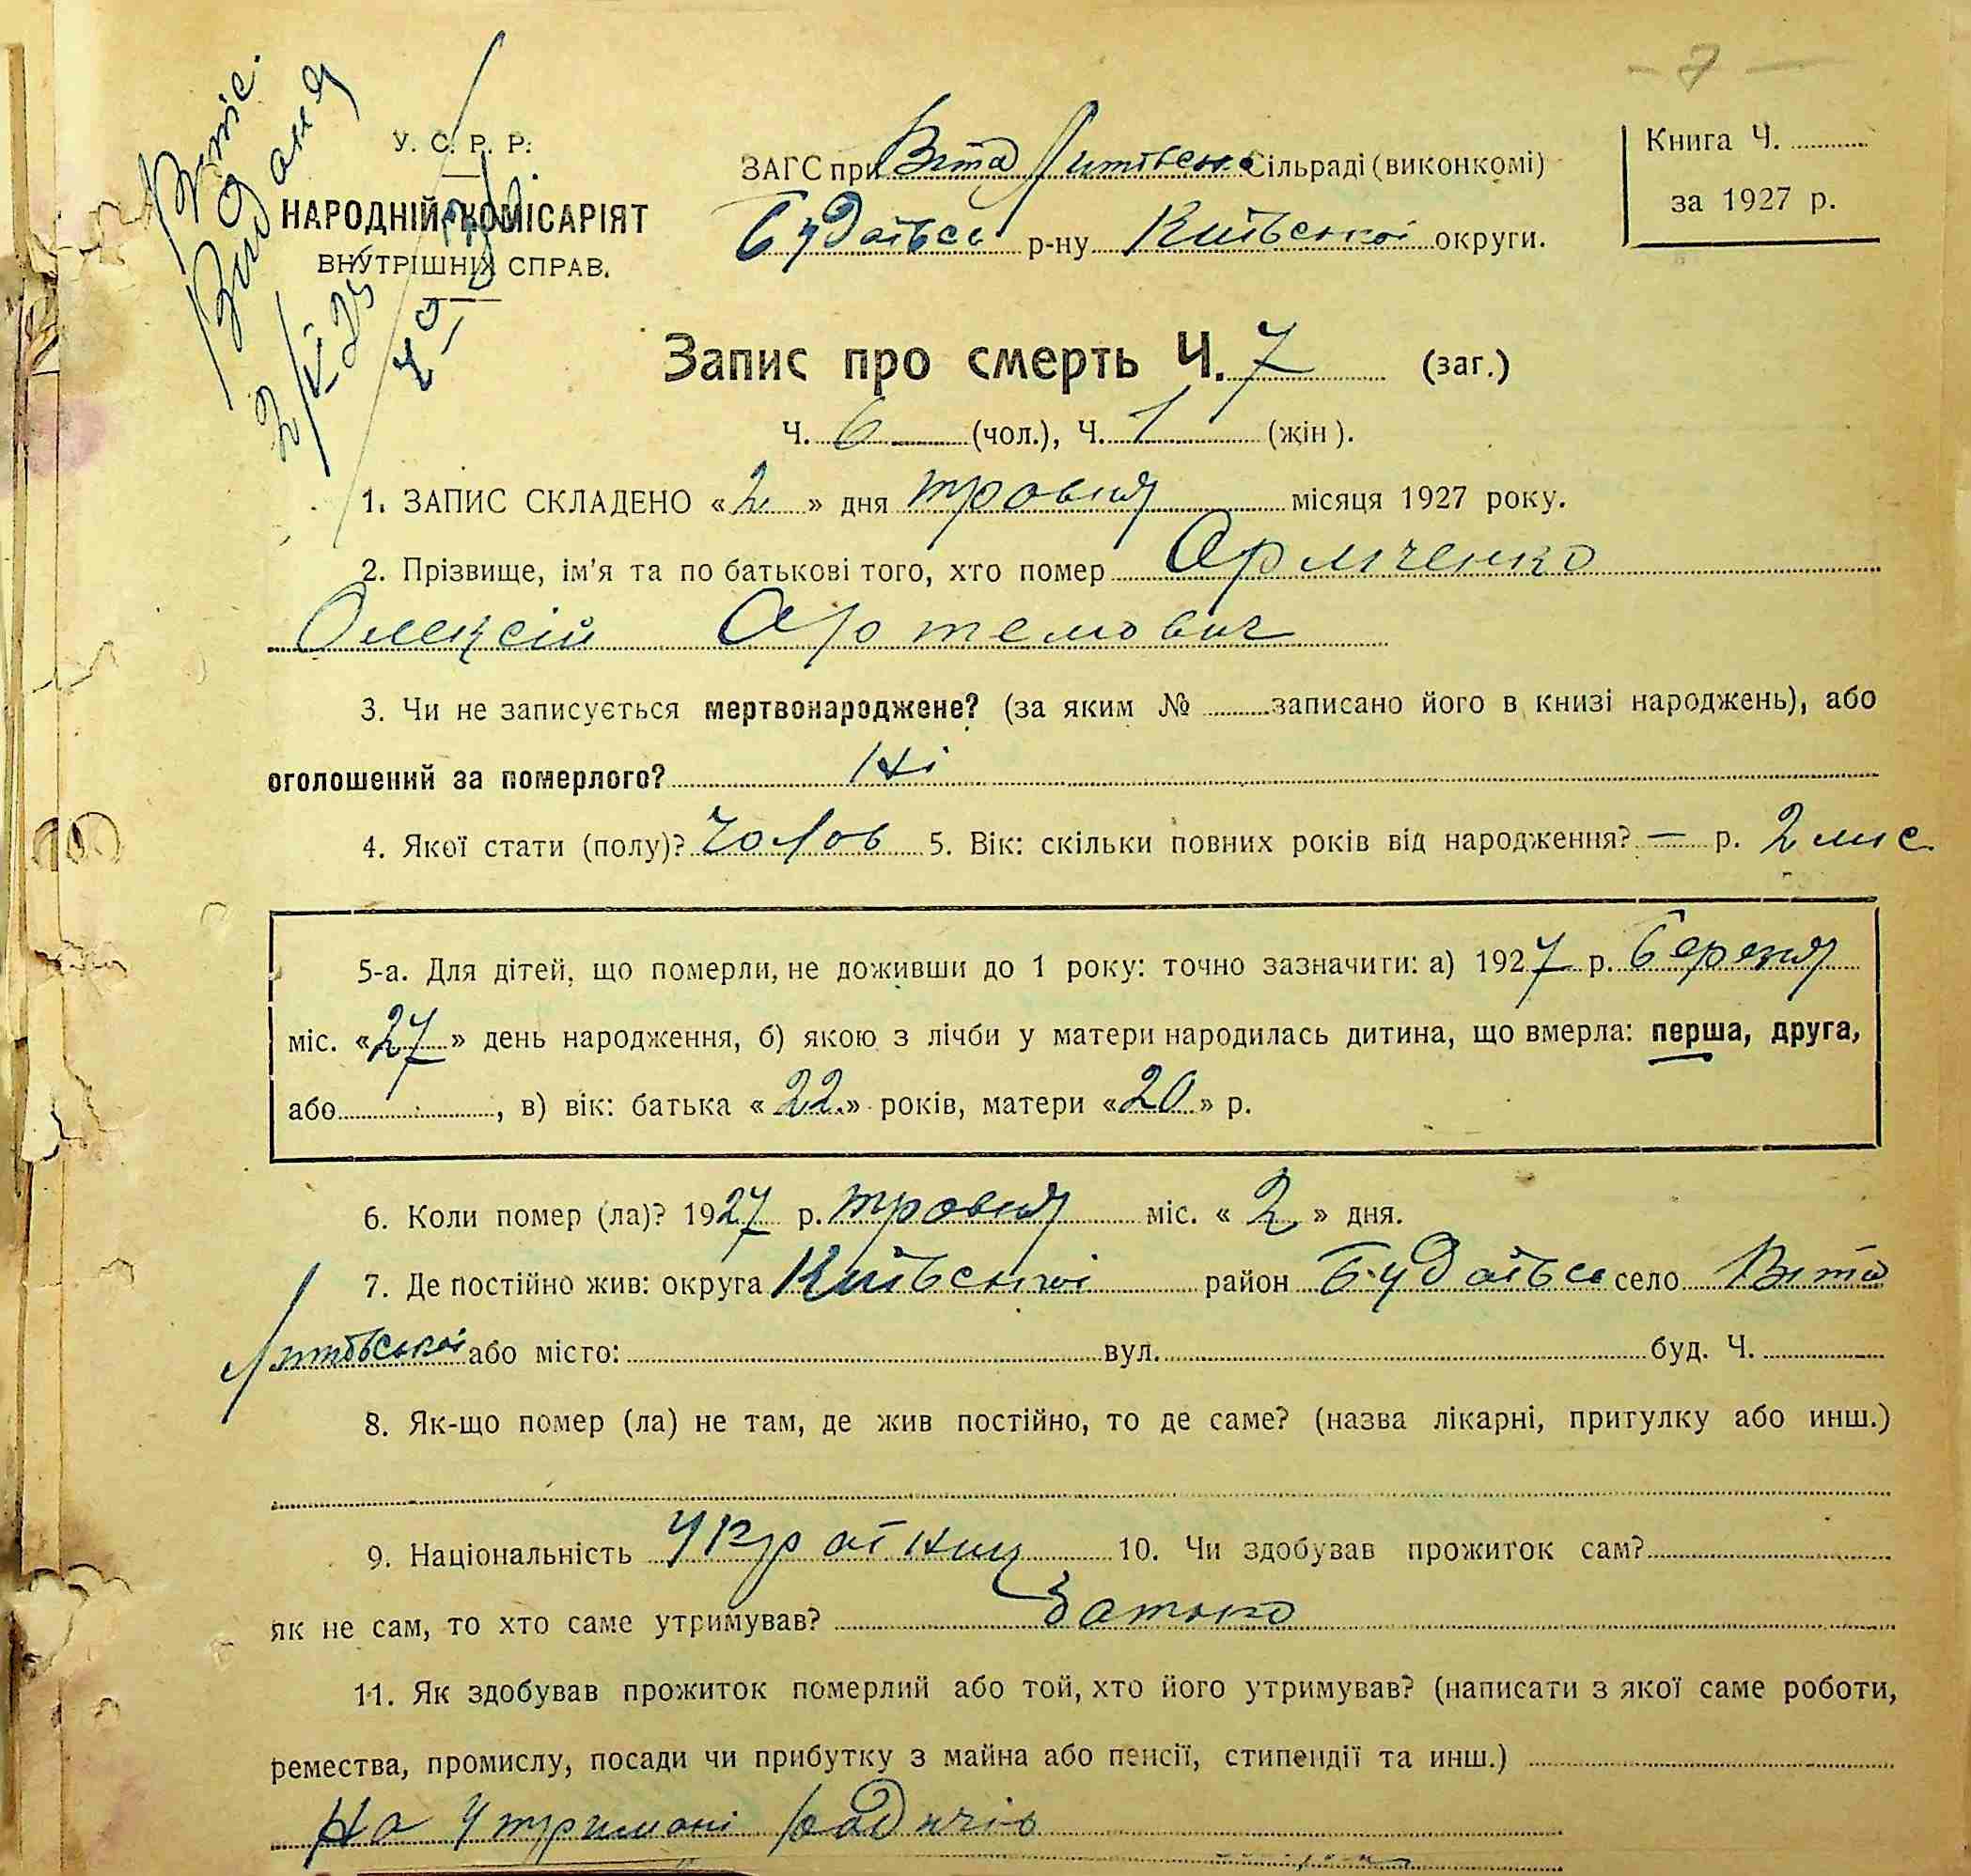 - 7 -
Випис.
Видания
2/V 27
У. С. Р. Р.
НАРОДНІЙ КОМІСАРІЯТ
ВНУТРІШНІХ СПРАВ.
ЗАГС при Віта Литовськ. Сільраді (виконкомі)
Будаївсь р-ну Київської округи.
Книга Ч.
за 1927 р.
Запис про смерть Ч. 7 (заг.)
Ч. 6 (чол.), Ч. 1 (жін).
1. ЗАПИС СКЛАДЕНО «2» дня травня місяця 1927 року.
2. Прізвище, ім'я та по батькові того, хто помер
Олексій Артемович
3. Чи не записується мертвонароджене? (за яким № записано його в книзі народжень), або
оголошений за померлого? Ні
4. Якої стати (полу)? Чолов 5. Вік: скільки повних років від народження? — р. 2 міс
5-а. Для дітей, що померли, не доживши до 1 року: точно зазначити: а) 1927 р. березня
міс. «27» день народження, б) якою з лічби у матери народилась дитина, що вмерла: перша, друга,
або , в) вік: батька «22» років, матери «20» р.
6. Коли помер (ла)? 1927 р. травня міс. «2» дня.
7. Де постійно жив: округа Київської район Будаївсь село Віта
Литовської або місто: вул. буд. Ч.
8. Як-що помер (ла) не там, де жив постійно, то де саме? (назва лікарні, притулку або инш.)
9. Національність Україниц 10. Чи здобував прожиток сам?
як не сам, то хто саме утримував? Батько
11. Як здобував прожиток померлий або той, хто його утримував? (написати з якої саме роботи,
ремества, промислу, посади чи прибутку з майна або пенсії, стипендії та инш.)
На утримані родичів